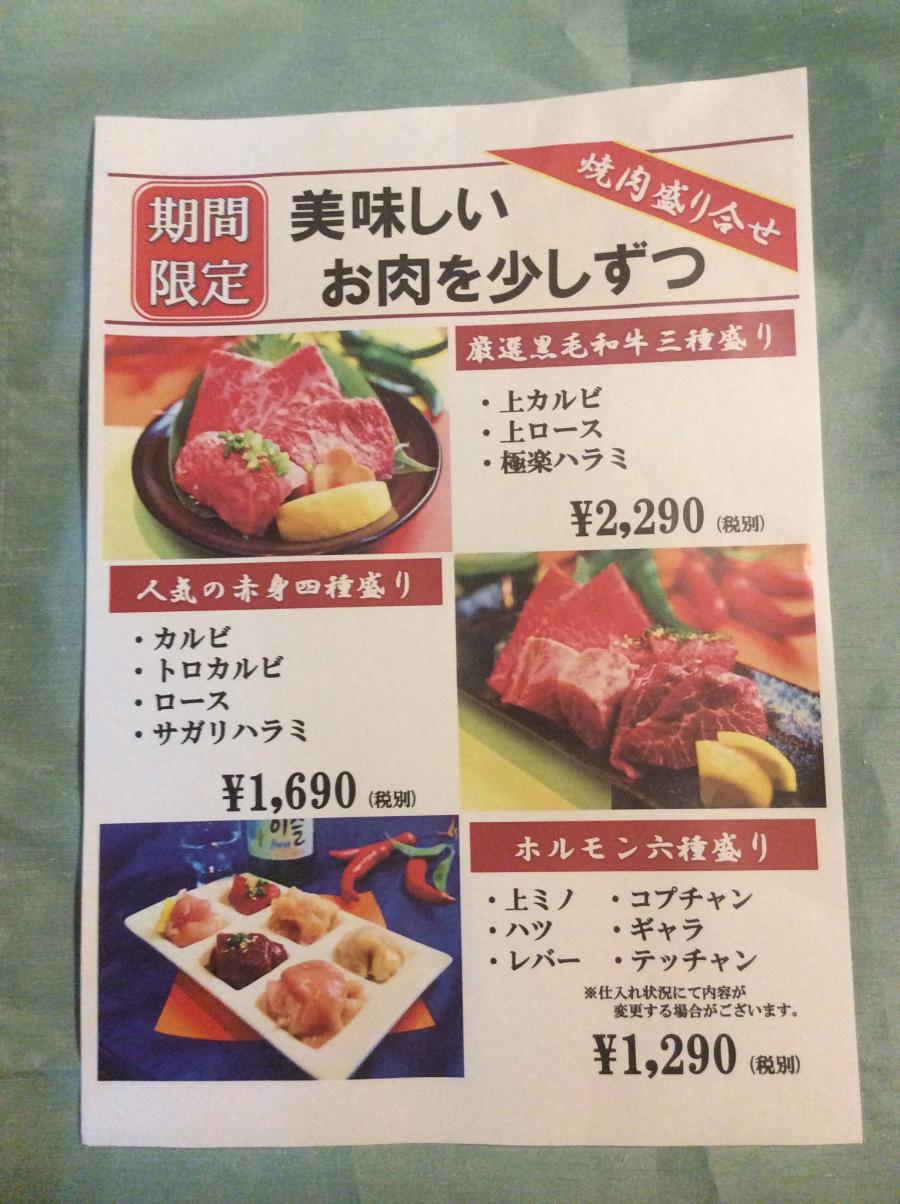 焼肉盛り合せ
期間
限定
美味しい
お肉を少しずつ
厳選黒毛和牛三種盛り
・上カルビ
・上ロース
・極楽ハラミ
¥2,290(税別)
人気の赤身四種盛り
・カルビ
・トロカルビ
・ロース
・サガリハラミ
¥1,690(税別)
이슬
fresh
ホルモン六種盛り
・上ミノ ・コプチャン
・ハツ ・ギャラ
・レバー ・テッチャン
※仕入れ状況にて内容が
変更する場合がございます。
¥1,290(税別)